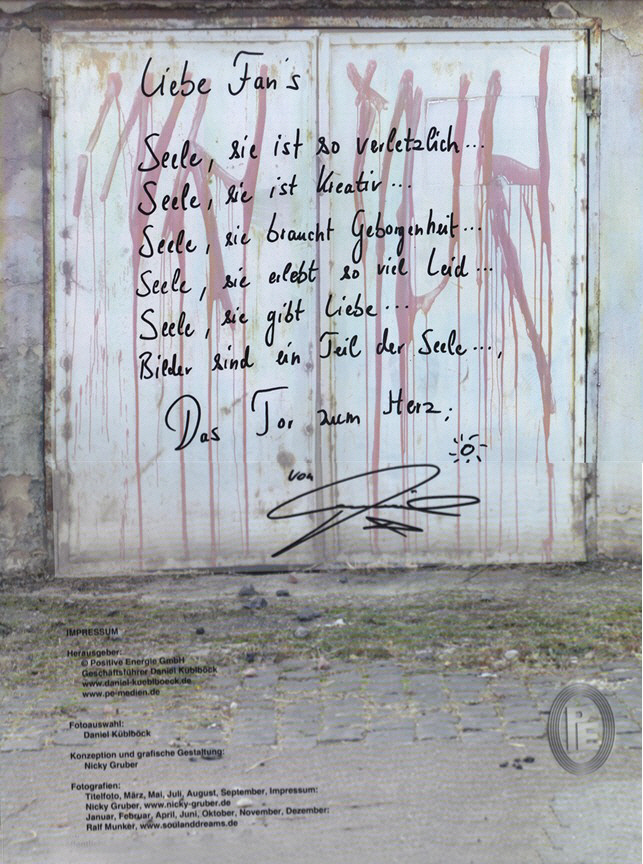 Liebe Fan's
Seele, sie ist so verletzlich...
Seele, sie ist Kreativ...
Seele, sie braucht Geborgenheit...
Seele, sie erlebt so viel Leid...
Seele, sie gibt Liebe...
Bilder sind ein Teil der Seele...,
Das Tor zum Herz;
von
IMPRESSUM
Herausgeber:
© Positive Energie GmbH
Geschäftsführer Daniel Küblböck
www.daniel-kueblboeck.de
www.pe-medien.de
Fotoauswahl:
Daniel Küblböck
Konzeption und grafische Gestaltung:
Nicky Gruber
Fotografien:
Titelfoto, März, Mai, Juli, August, September, Impressum:
Nicky Gruber, www.nicky-gruber.de
Januar, Februar, April, Juni, Oktober, November, Dezember:
Ralf Munker, www.soulanddreams.de
PE